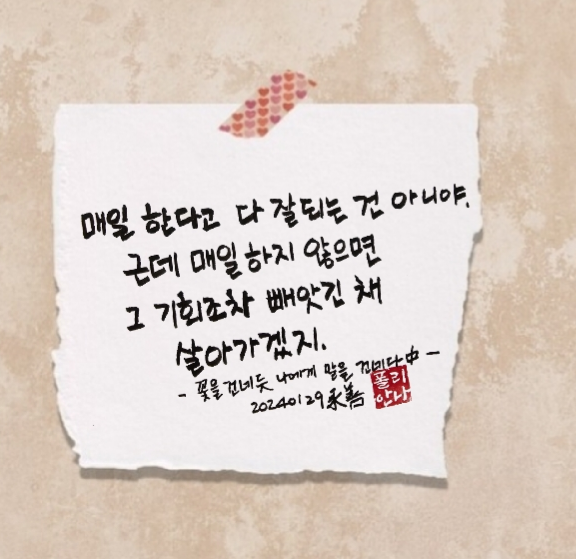 매일 한다고 다 잘되는 건 아니야.
근데 매일 하지 않으면
그 기회조차 빼앗긴 채
살아가겠지.
- 꽃을 건네듯 나에게 말을 건네다 中 -
20240129 永善
폴리
안나